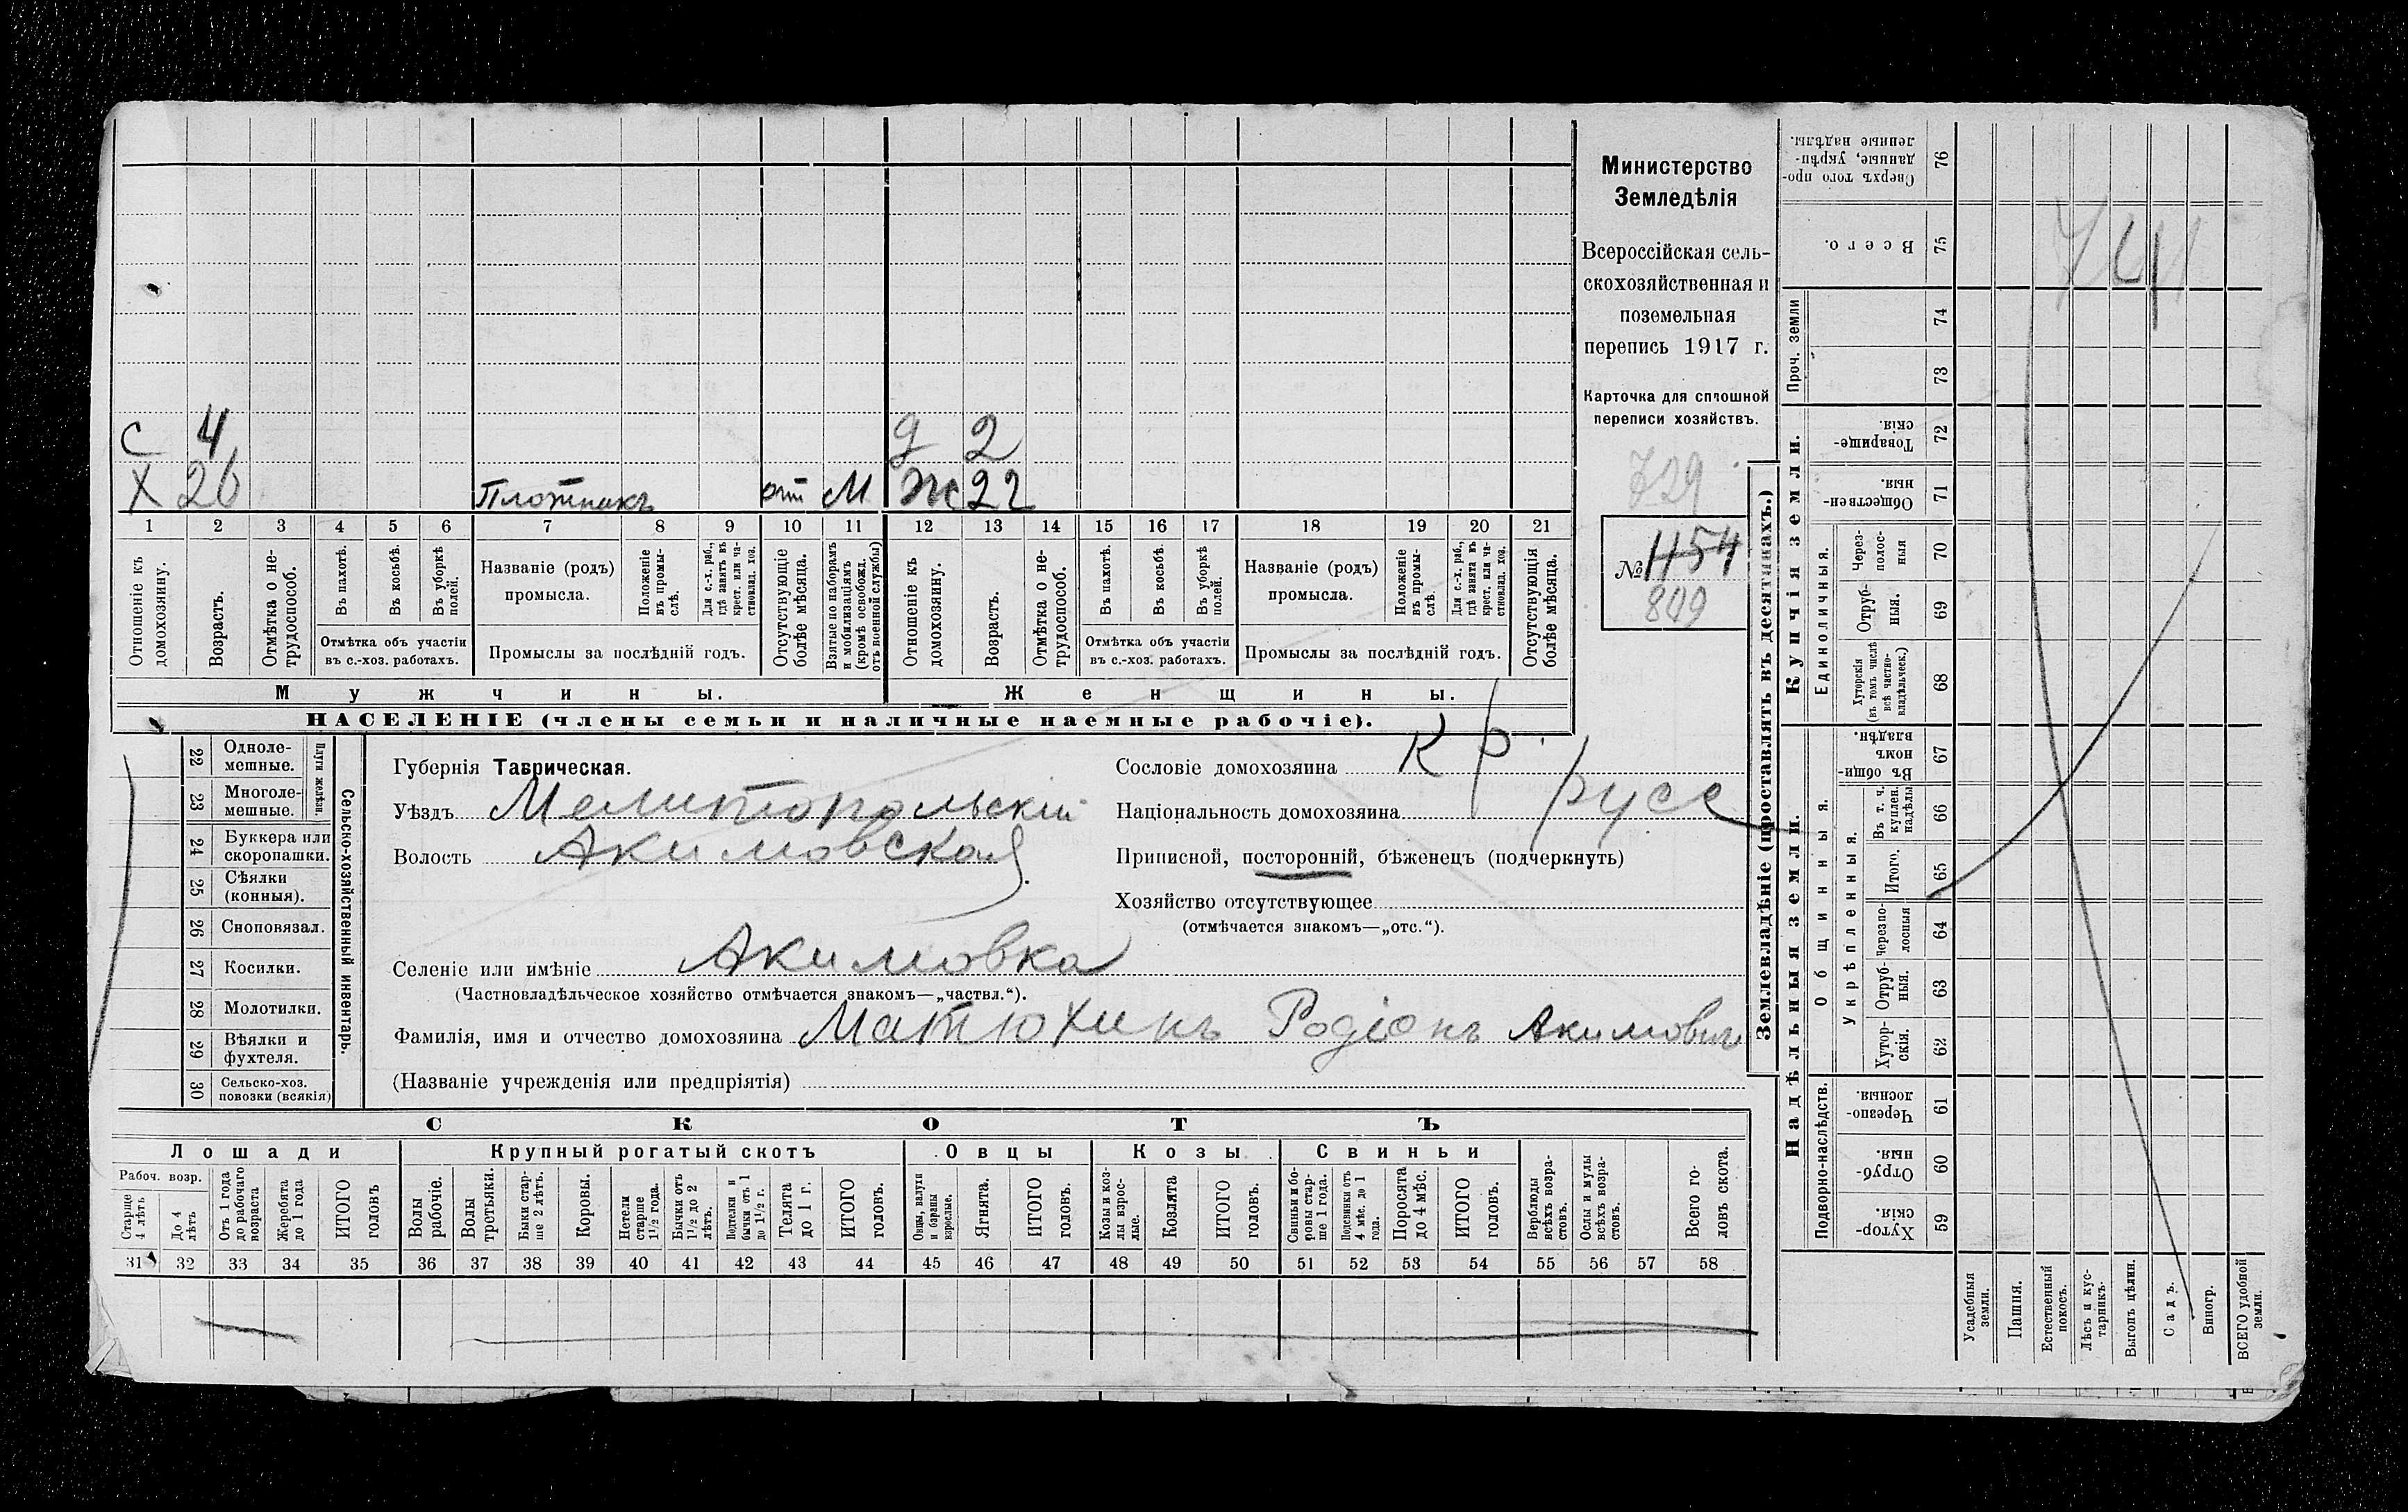 Министерство
Земледѣлія
Всероссійская сель-
скохозяйственная и
поземельная
перепись 1917 г.
Карточка для сплошной
переписи хозяйствъ.
729
№ 1154
809
С 4 д 2
Х 26 Плотникъ отп М ж 22
1 2 3 4 5 6 7 8 9 10 11 12 13 14 15 16 17 18 19 20 21
Отношеніе къ домохозяину.
Возрастъ.
Отмѣтка о не-трудоспособ.
Въ пахотѣ.
Въ косьбѣ.
Въ уборкѣ полей.
Отмѣтка объ участіи
въ с.-хоз. работахъ.
Названіе (родъ)
промысла.
Положеніе въ промы-слѣ.
Для с.-х. раб., гдѣ занятъ въ крест. или ча-стновлад. хоз.
Промыслы за послѣдній годъ.
Отсутствующіе болѣе мѣсяца.
Взятые по наборамъ и мобилизаціямъ (кромѣ освобожд. отъ военной службы)
Отношеніе къ домохозяину.
Возрастъ.
Отмѣтка о не-трудоспособ.
Въ пахотѣ.
Въ косьбѣ.
Въ уборкѣ полей.
Отмѣтка объ участіи
въ с.-хоз. работахъ.
Названіе (родъ)
промысла.
Положеніе въ промы-слѣ.
Для с.-х. раб., гдѣ занята въ крест. или ча-стновлад. хоз.
Промыслы за послѣдній годъ.
Отсутствующія болѣе мѣсяца.
Мужчины. Женщины.
НАСЕЛЕНІЕ (члены семьи и наличные наемные рабочіе).
Сельско-хозяйственный инвентарь.
Плуги желѣзн.
22 Одноле-мешные.
23 Многоле-мешные.
24 Буккера или скоропашки.
25 Сѣялки (конныя).
26 Сноповязал.
27 Косилки.
28 Молотилки.
29 Вѣялки и фухтеля.
30 Сельско-хоз. повозки (всякія)
Губернія Таврическая.
Уѣздъ Мелитопольскій
Волость Акимовская
Сословіе домохозяина кр.
Національность домохозяина русс
Приписной, посторонній, бѣженецъ (подчеркнуть)
Хозяйство отсутствующее
(отмѣчается знакомъ—„отс.“).
Селеніе или имѣніе Акимовка
(Частновладѣльческое хозяйство отмѣчается знакомъ—„частвл.“).
Фамилія, имя и отчество домохозяина Матюхинъ Родіонъ Акимовичъ
(Названіе учрежденія или предпріятія)
СКОТЪ
Лошади Крупный рогатый скотъ Овцы Козы Свиньи
Рабоч. возр.
Старше 4 лѣтъ
До 4 лѣтъ
Отъ 1 года до рабочаго возраста
Жеребята до 1 года
ИТОГО головъ
Волы рабочіе.
Волы третьяки.
Быки стар-ше 2 лѣтъ.
Коровы.
Нетели старше 1½ года.
Бычки отъ 1½ до 2 лѣтъ.
Подтелки и бычки отъ 1 до 1½ г.
Телята до 1 г.
ИТОГО головъ.
Овцы, валухи и бараны взрослые.
Ягнята.
ИТОГО головъ.
Козы и коз-лы взрос-лые.
Козлята
ИТОГО головъ.
Свиньи и бо-ровы стар-ше 1 года.
Подсвинки отъ 4 мѣс. до 1 года.
Поросята до 4 мѣс.
ИТОГО головъ.
Верблюды всѣхъ возра-стовъ.
Ослы и мулы всѣхъ возра-стовъ.
Всего го-ловъ скота.
31 32 33 34 35 36 37 38 39 40 41 42 43 44 45 46 47 48 49 50 51 52 53 54 55 56 57 58
Землевладѣніе (проставлять въ десятинахъ.)
Надѣльныя земли. Купчія земли. Проч. земли
Подворно-наслѣдств.
Общинныя.
Укрѣпленныя.
Единоличныя.
59 Хутор-скія.
60 Отруб-ныя.
61 Черезпо-лосныя.
62 Хутор-скія.
63 Отруб-ныя.
64 Черезпо-лосныя
65 Итого.
66 Въ т. ч. куплен. надѣлы
67 Въ общи-номъ владѣн.
68 Хуторскія (въ томъ числѣ всѣ частно-владѣльческ.)
69 Отруб-ныя.
70 Через-полос-ныя
71 Обществен-ныя.
72 Товарище-скія.
73
74
75 Всего.
76 Сверхъ того про-данные, укрѣп-ленные надѣлы.
741
Усадебныя земли.
Пашня.
Естественный покосъ.
Лѣсъ и кус-тарникъ.
Выгонъ цѣлин.
Садъ.
Виногр.
ВСЕГО удобной земли.